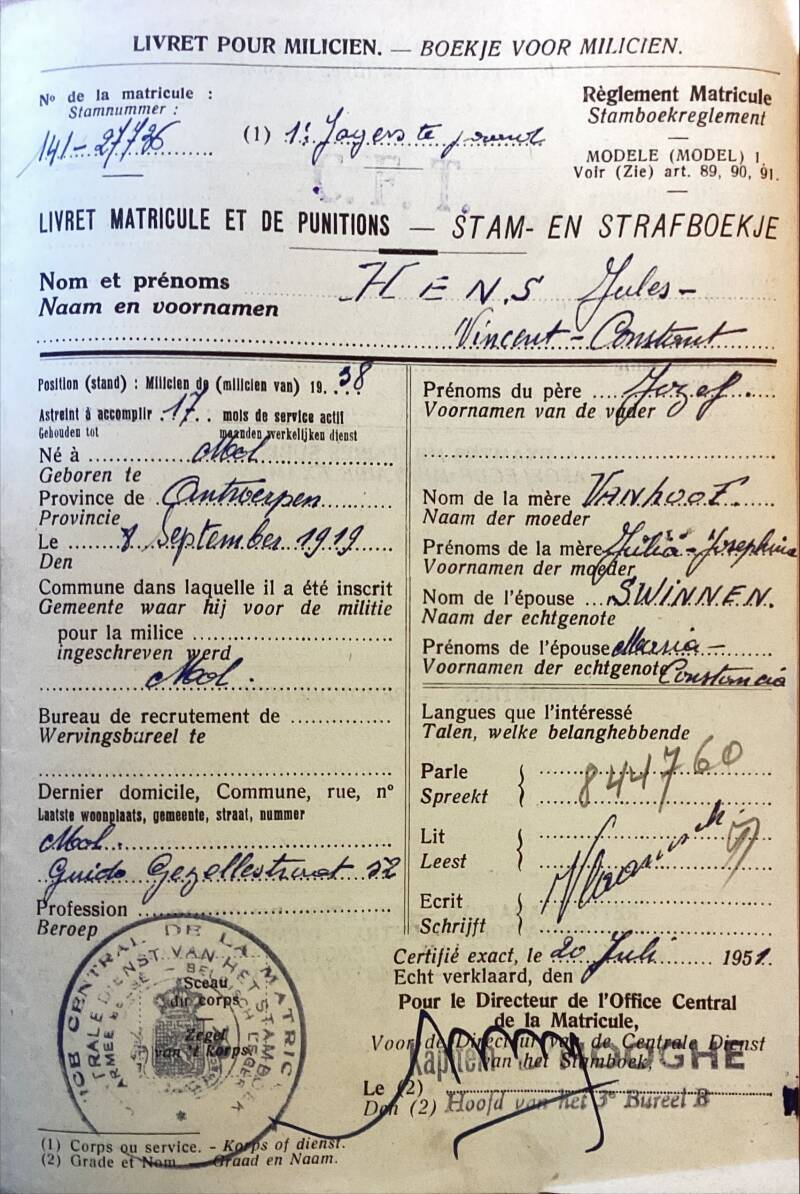 LIVRET POUR MILICIEN. — BOEKJE VOOR MILICIEN.
No de la matricule :
Stamnummer :
141-27736
(1) 1e Jagers te paard
Règlement Matricule
Stamboekreglement
MODELE (MODEL) 1
Voir (Zie) art. 89, 90, 91.
LIVRET MATRICULE ET DE PUNITIONS — STAM- EN STRAFBOEKJE
Nom et prénoms HENS Jules-
Naam en voornamen
Vincent-Constant
Position (stand) : Milicien de (milicien van) 1938
Astreint à accomplir 17 mois de service actif
Gehouden tot maanden werkelijken dienst
Né à Mol
Geboren te
Province de Antwerpen
Provincie
Le 8 September 1919
Den
Commune dans laquelle il a été inscrit
Gemeente waar hij voor de militie
pour la milice
ingeschreven werd
Mol.
Bureau de recrutement de
Wervingsbureel te
Dernier domicile, Commune, rue, no
Laatste woonplaats, gemeente, straat, nummer
Mol.
Guido Gezellestraat 52
Profession
Beroep
Prénoms du père Jozef.
Voornamen van de vader
Nom de la mère VANHOOF.
Naam der moeder
Prénoms de la mère Julia-Josephina
Voornamen der moeder
Nom de l'épouse SWINNEN.
Naam der echtgenote
Prénoms de l'épouse Maria-
Voornamen der echtgenote Constancia
Langues que l'intéressé
Talen, welke belanghebbende
Parle
Spreekt
844760
Lit
Leest
Ecrit
Schrijft
Certifié exact, le 20 Juli 1951.
Echt verklaard, den
Pour le Directeur de l'Office Central
de la Matricule,
Voor de Directeur van de Centrale Dienst
van het Stamboek,
Le (2)
Den (2) Hoofd van het 3e Bureel B
Sceau
du corps
Zegel
van 't Korps
(1) Corps ou service. - Korps of dienst.
(2) Grade et Nom. - Graad en Naam.